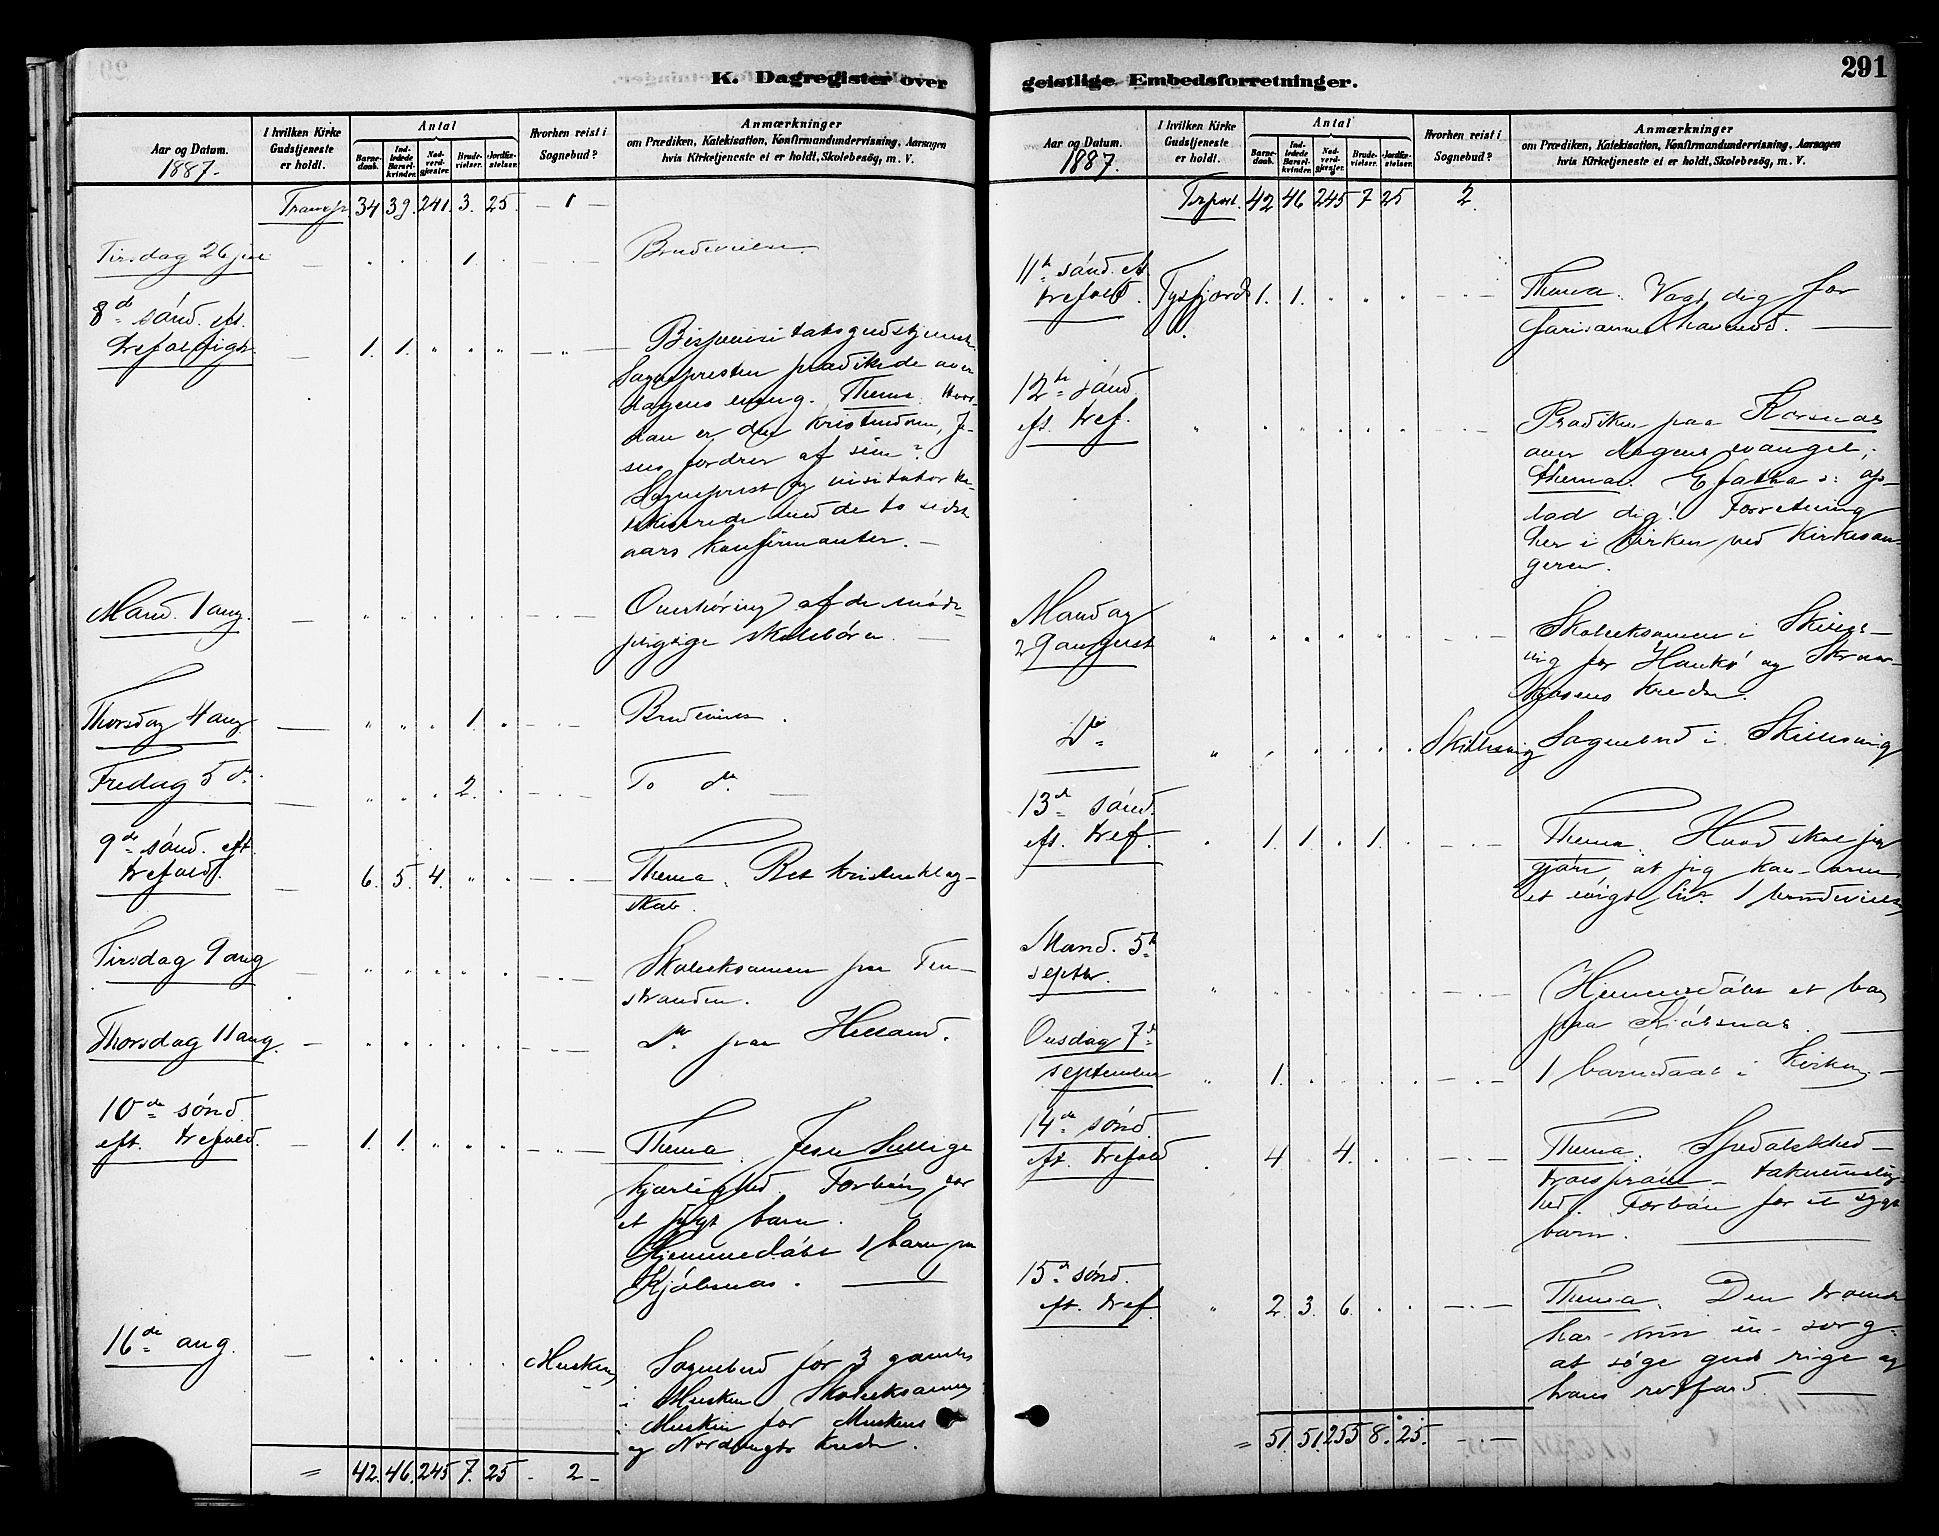 K. Dagregister over
Aar og Datum.
1887.
I hvilken Kirke Gudstjeneste er holdt.
Antal
Barnedaab.
Indledede Barselkvinder.
Nadverdgjæster.
Brudevielser.
Jordfæstelser.
Hvorhen reist i Sognebud?
Anmærkninger
om Prædiken, Katekisation, Konfirmandundervisning, Aarsagen
hvis Kirketjeneste ei er holdt, Skolebesög, m. V.
Transp. 34 39. 241. 3. 25. — 1 —
Tirsdag 26 juli — 1. Brudevielse.
8de sönd. eft.
trefoldigh. — 1. 1. Bispevisitatsgudstjeneste.
Sognepresten prædikede over
dagens evang. Thema: Hvor-
dan er den Kristendom, Je-
sus fordrer af sine?
Sogneprest og visitator ka-
tekiserede med de to sidste
aars konfirmanter. —
Mand. 1 aug. — Overhøring af de møde-
pligtige skolebörn. —
Thorsdag 4 aug. — 1. Brudevielse.
Fredag 5 do — 2. To do —
9de sönd. eft.
trefold. — 6. 5. 4. Thema: Ret Kristenklog-
skab.
Tirsdag 9 aug — Skoleeksamen paa
stranden.
Thorsdag 11 aug. — do paa Helland.
10de sønd
eft. trefold. — 1. 1. Thema. Jesu hellige
kjærlighed. Forbön for
et sygt barn.
Hjemmedöbt 1 barn paa
Kjöbsnæs. —
16de aug. — Musken Sognebud for 3 gamle
i Musken Skoleeksamen
i Musken for Muskens
og Nordbugts kredse.
= 42. 46. 245 7. 25 - 2 -
geistlige Embedsforretninger.
291
Aar og Datum.
1887.
I hvilken Kirke Gudstjeneste er holdt.
Antal
Barnedaab.
Indledede Barselkvinder.
Nadverdgjæster.
Brudevielser.
Jordfæstelser.
Hvorhen reist i Sognebud?
Anmærkninger
om Prædiken, Katekisation, Konfirmandundervisning, Aarsagen
hvis Kirketjeneste ei er holdt, Skolebesög, m. V.
Trsport. 42 46 245 7 25 2.
11te sönd. eft
trefold. Tysfjord 1. 1. Thema. Vogt dig for
farisæernes —
12te sönd
eft. tref. Prædiken paa Korsnæs
over dagens evangel.;
thema: Effatha o: op-
lad dig! Forretning
her i Kirken ved Kirkesan-
geren.
Mandag
29 august Skoleeksamen i Skilles-
vig for Hankö og
kredse.
do Skillesvig Sognebud i Skillesvig
13de sönd.
eft. tref. 1. 1. 1. Thema. Hvad skal jeg
gjøre, at jeg kan arve
et evigt liv. 1 brudevielse
Mand. 5te
septbr. Hjemmedöbt et barn
paa Kjöbsnæs. —
Onsdag 7de
september 1. 1 barnedaab i Kirken —
14de sønd.
eft. trefold 4 4. Thema: Spedalskhed —
troesprøve — taknemmelig-
hed. Forbön for et sygt
barn. —
15de sönd.
eft. tref. 2. 3. 6. Thema. Den troende
har kun en sorg:
at søge guds rige og
hans retfærd. —
= 51. 51. 255 8. 25.